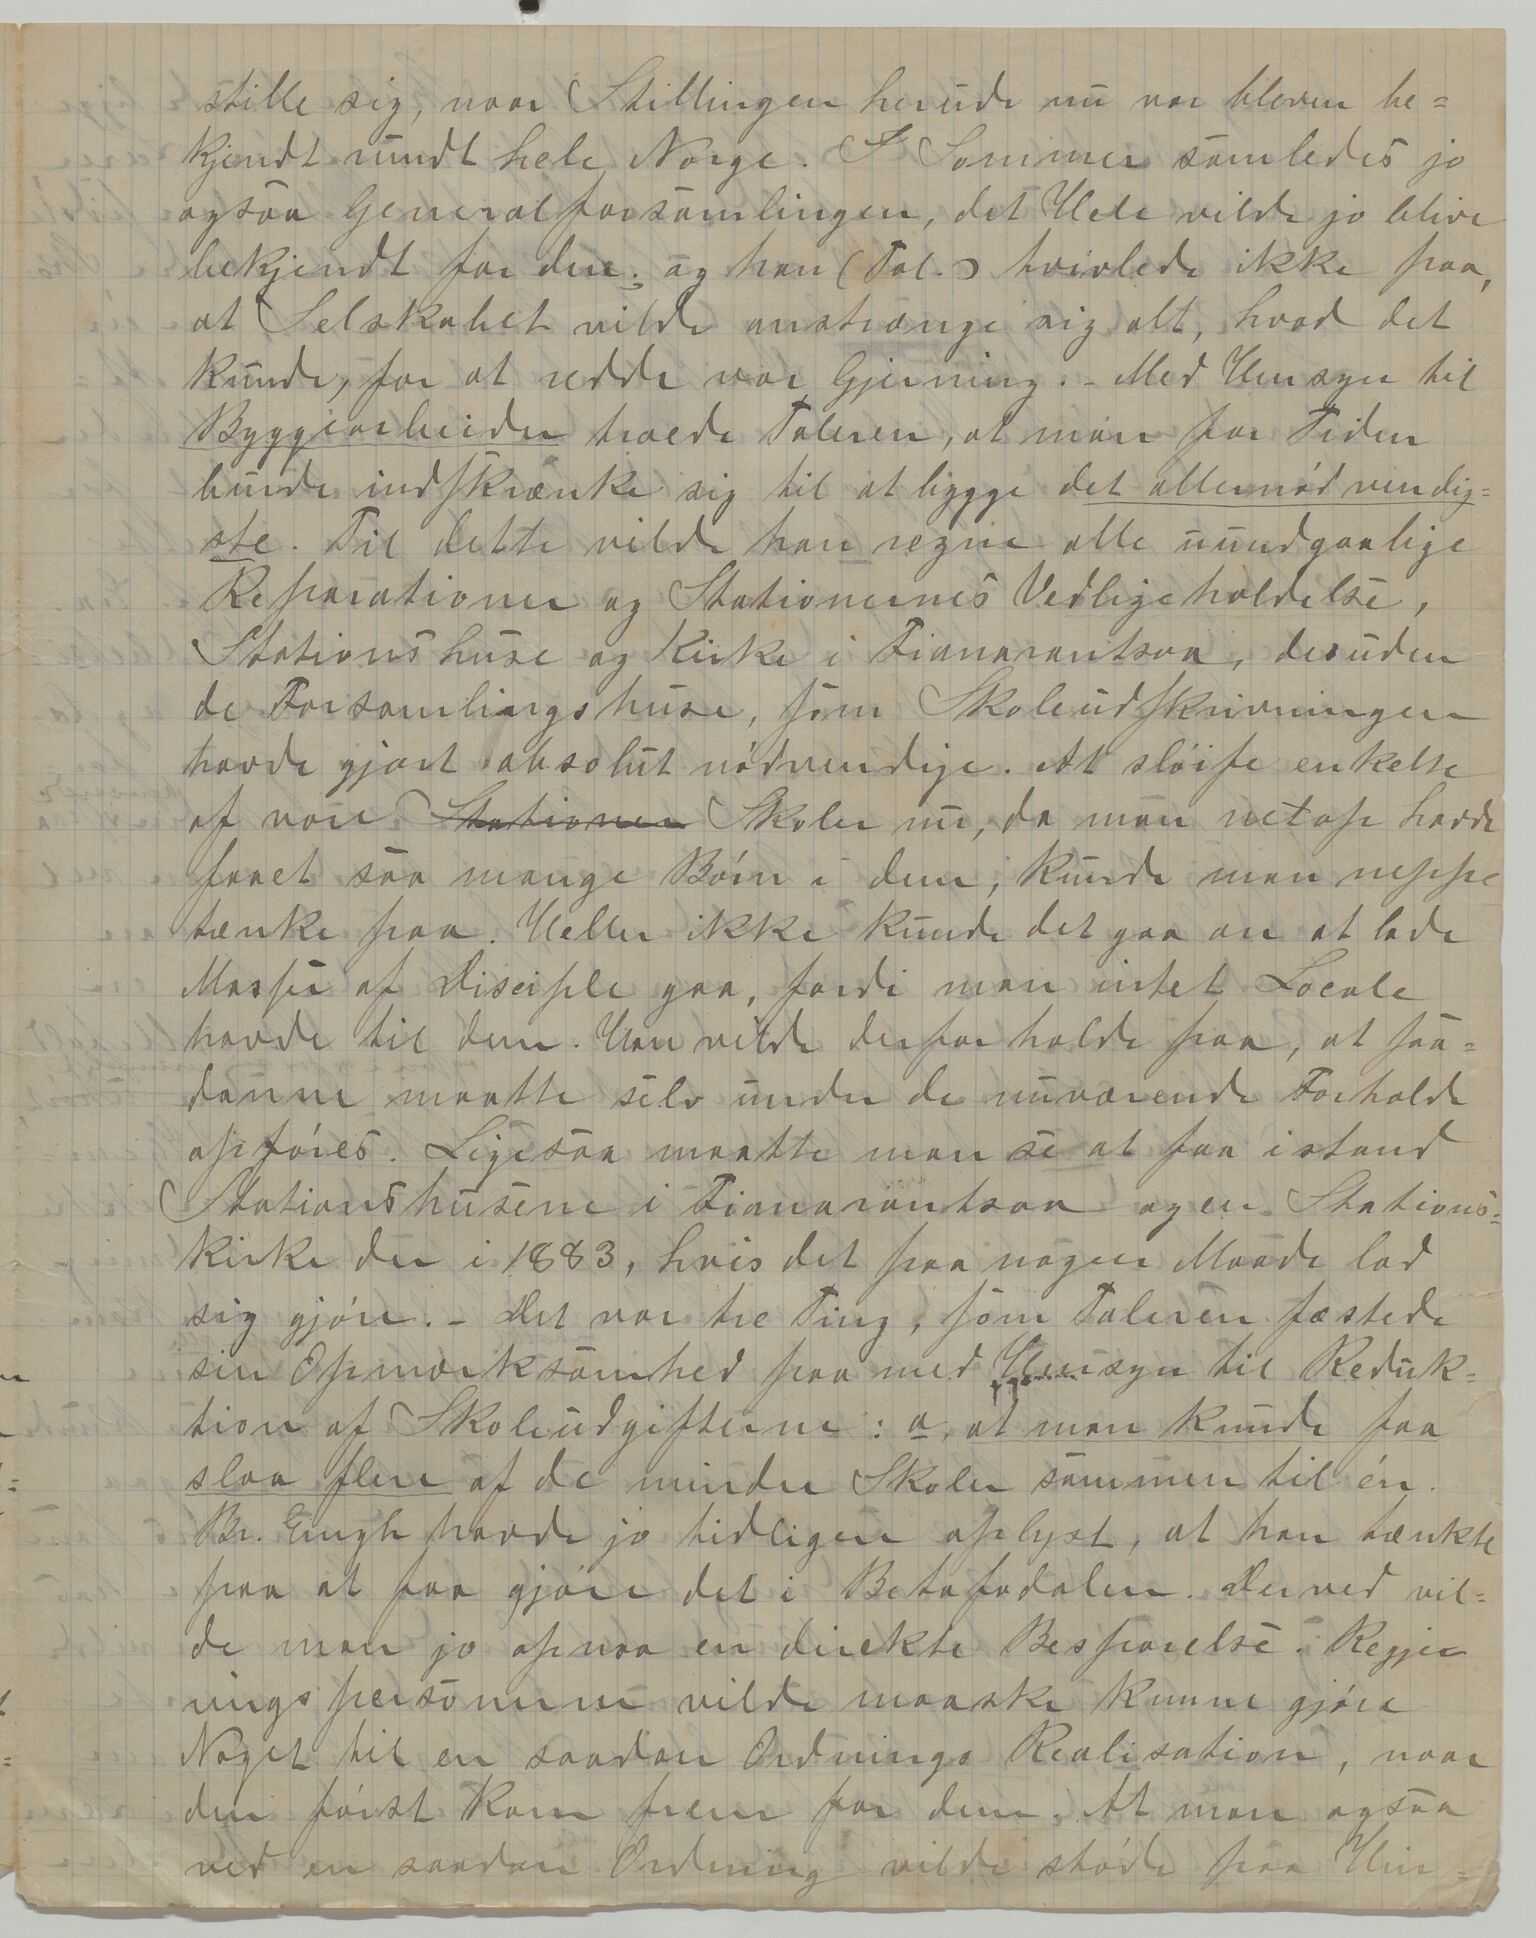 stille sig, naar Stillingen herude nu var bleven be=
kjendt rundt hele Norge. I Sommer samledes jo
ogsaa Generalforsamlingen, det Hele vilde jo blive
bekjendt for den; og han (Tal.) tvivlede ikke paa,
at Selskabet vilde anstrænge sig alt, hvad det
kunde, for at redde vor Gjerning. - Med Hensyn til
Byggearbeider troede Taleren, at man for Tiden
burde indskrænke sig til at bygge det allernødvendig=
ste. Til dette vilde han regne alle uundgaalige
Reparationer og Stationernes Vedligeholdelse,
Stationshuse og Kirke i Fianarantsoa, desuden
de Forsamlingshuse, som Skoleudskrivningen
havde gjort absolut nødvendige. At sløife enkelte
af vore Stationer Skoler nu, da man netop havde
faaet saa mange Børn i dem, kunde man neppe
tænke paa. Heller ikke kunde det gaa an at lade
Masser af Disciple gaa, fordi man intet Locale
havde til dem. Han vilde derfor holde paa, at saa=
danne maatte selv under de nuværende Forholde
opføres. Ligesaa maatte man se at faa istand
Stationshusene i Fianarantsoa og en Stations=
kirke der i 1883, hvis det paa nogen Maade lod
sig gjøre. - Det var tre Ting, som Taleren fæstede
sin Opmærksomhed paa med Hensyn til Reduk=
tion af Skoleudgifterne: a, at man kunde faa
slaa flere af de mindre Skoler sammen til én.
Br. Engh havde jo tidligere oplyst, at han tænkte
paa at faa gjøre det i Betafodalen. Derved vil=
de man jo opnaa en direkte Besparelse. Regjer
ingspersonerne vilde maaske kunne gjøre
Noget til en saadan Ordnings Realisation, naar
den først kom frem for dem. At man ogsaa
ved en saadan Ordning vilde støde paa Hin=